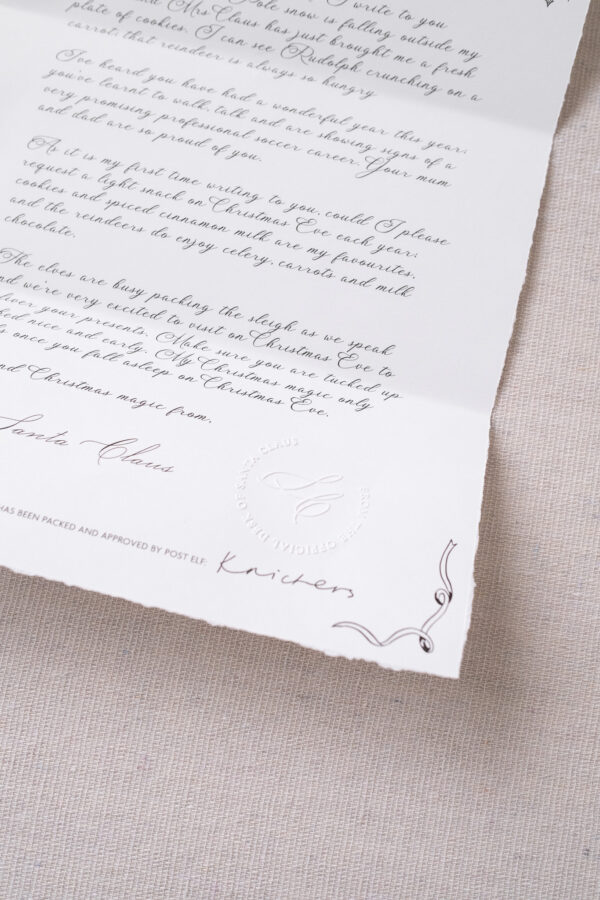 I write to you
Pole snow is falling outside my
Mrs Claus has just brought me a fresh
plate of cookies. I can see Rudolph crunching on a
carrot; that reindeer is always so hungry
I've heard you have had a wonderful year this year;
you've learnt to walk, talk and are showing signs of a
very promising professional soccer career. Your mum
and dad are so proud of you.
As it is my first time writing to you, could I please
request a light snack on Christmas Eve each year;
cookies and spiced cinnamon milk are my favourites,
and the reindeers do enjoy celery, carrots and milk
chocolate.
The elves are busy packing the sleigh as we speak
and we're very excited to visit on Christmas Eve to
your presents. Make sure you are tucked up
nice and early. My Christmas magic only
once you fall asleep on Christmas Eve.
and Christmas magic from,
Santa Claus
FROM THE OFFICIAL DESK OF SANTA CLAUS
SC
HAS BEEN PACKED AND APPROVED BY POST ELF: Knickers